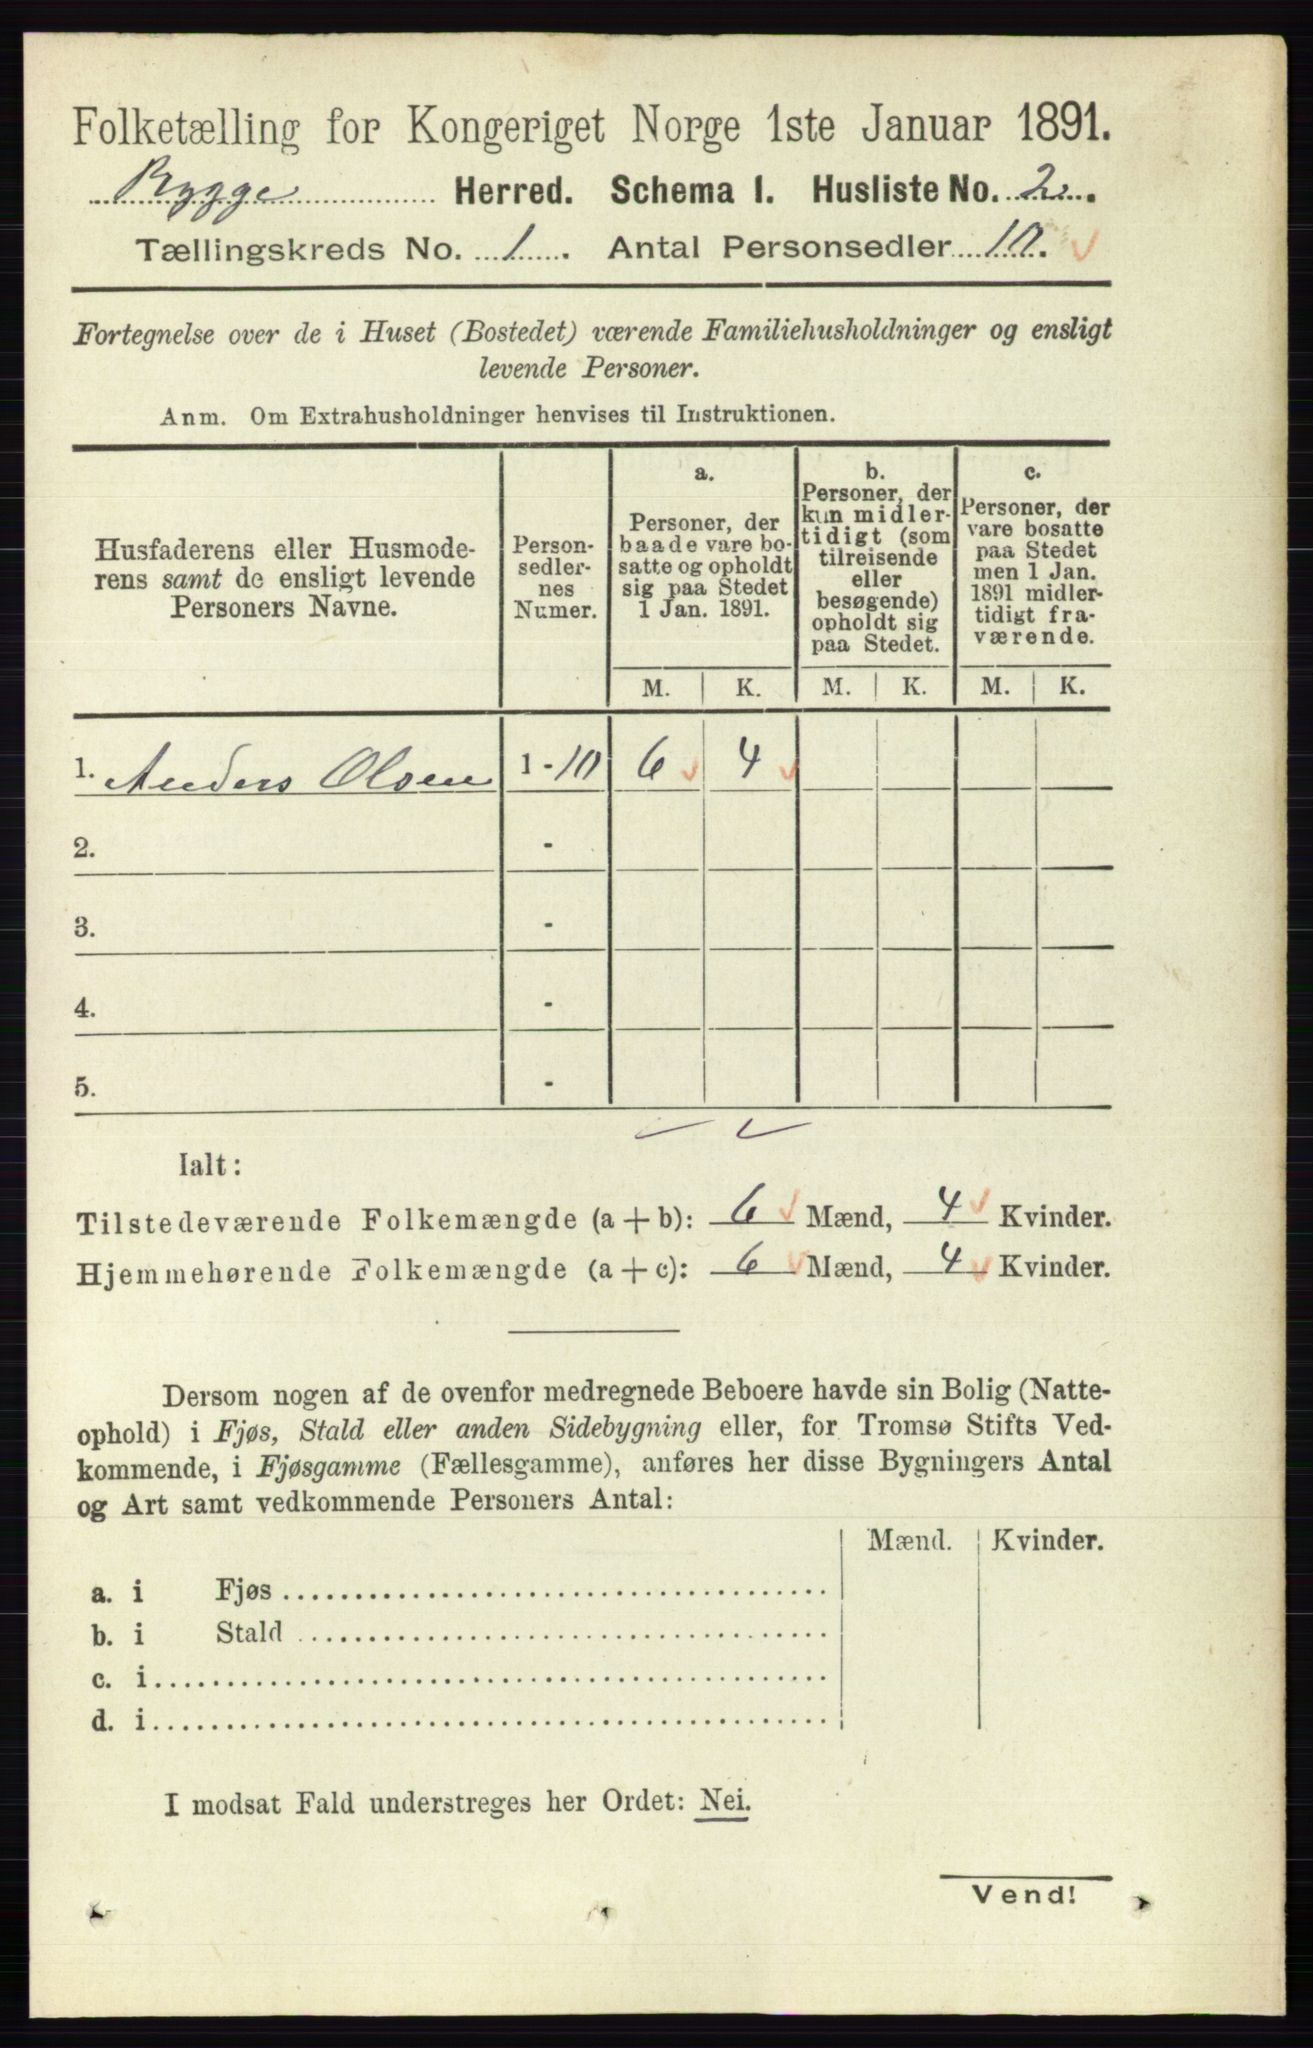 Folketælling for Kongeriget Norge 1ste Januar 1891.
Rygge Herred. Schema I. Husliste No. 2.
Tællingskreds No. 1. Antal Personsedler 10.
Fortegnelse over de i Huset (Bostedet) værende Familiehusholdninger og ensligt
levende Personer.
Anm. Om Extrahusholdninger henvises til Instruktionen.
Husfaderens eller Husmode-
rens samt de ensligt levende
Personers Navne.
Person-
sedler-
nes
Numer.
a.
Personer, der
baade vare bo-
satte og opholdt
sig paa Stedet
1 Jan. 1891.
b.
Personer, der
kun midler-
tidigt (som
tilreisende
eller
besøgende)
opholdt sig
paa Stedet.
c.
Personer, der
vare bosatte
paa Stedet
men 1 Jan.
1891 midler-
tidigt fra-
værende.
M. K. M. K. M. K.
1. Anders Olsen 1 - 10 6 4
2. -
3. -
4. -
5. -
Ialt:
Tilstedeværende Folkemængde (a + b): 6 Mænd, 4 Kvinder.
Hjemmehørende Folkemængde (a + c): 6 Mænd, 4 Kvinder.
Dersom nogen af de ovenfor medregnede Beboere havde sin Bolig (Natte-
ophold) i Fjøs, Stald eller anden Sidebygning eller, for Tromsø Stifts Ved-
kommende, i Fjøsgamme (Fællesgamme), anføres her disse Bygningers Antal
og Art samt vedkommende Personers Antal:
Mænd. Kvinder.
a. i Fjøs
b. i Stald
c. i
d. i
I modsat Fald understreges her Ordet: Nei.
Vend!